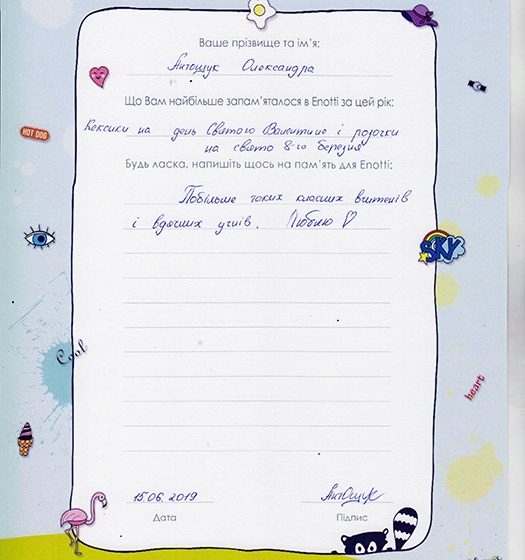 Ваше прізвище та ім'я:
Антощук Олександра
Що Вам найбільше запам'яталося в Enotti за цей рік:
Кексики на день Святого Валентина і розочки
на свято 8-го березня
Будь ласка, напишіть щось на пам'ять для Enotti:
Побільше таких класних вчителів
і вдячних учнів. Люблю ♡
HOT DOG
SKY
Cool
heart
15.06.2019
Антощук
Дата
Підпис